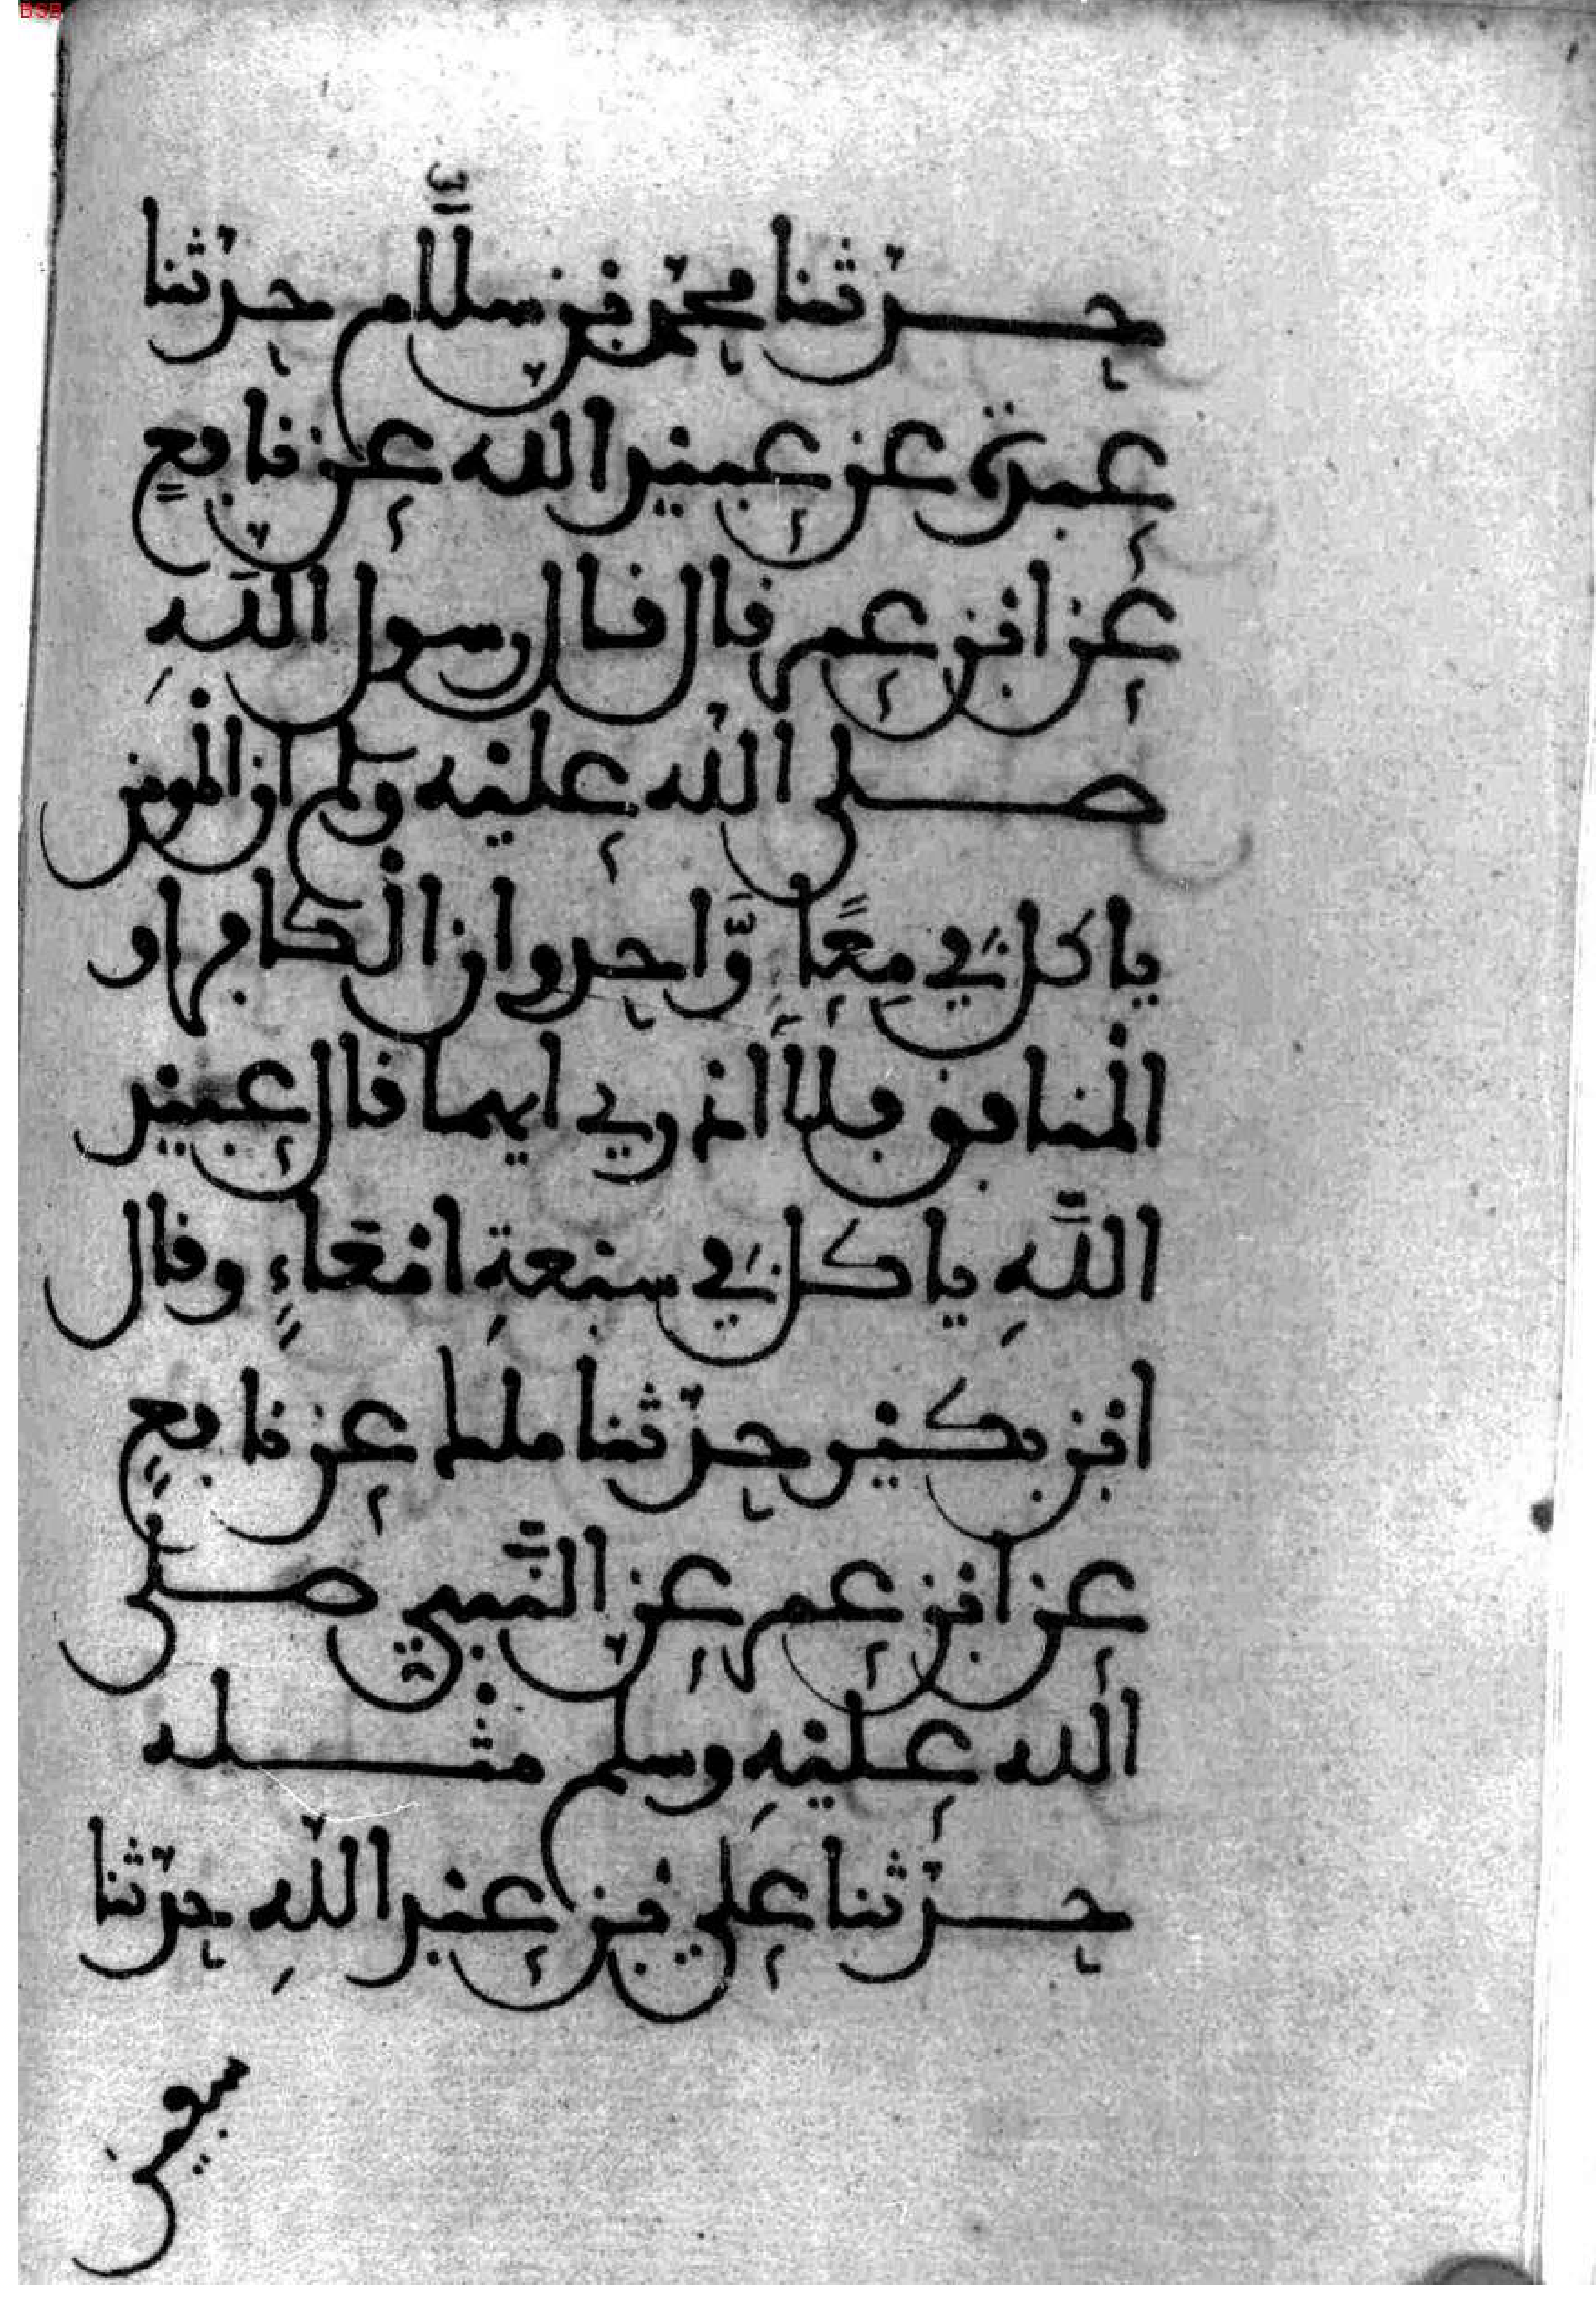 BSB
حدثنا محمد بن سلام حدثنا
عبدة عن عبيد الله عن نافع
عن ابن عمر قال قال رسول الله
صلى الله عليه وسلم ان المومن
ياكل في معا واحد وان الكافر او
المنافق فلا اد ري ايهما قال عبيد
الله ياكل في سبعة امعاء وقال
ابن بكير حدثنا ملك عن نافع
عن ابن عمر عن النبي صلى
الله عليه وسلم مثله
حدثنا علي بن عبد الله حدثنا
سفين